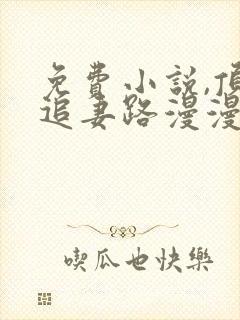 免費小說,
追妻路漫漫
喫瓜也快樂